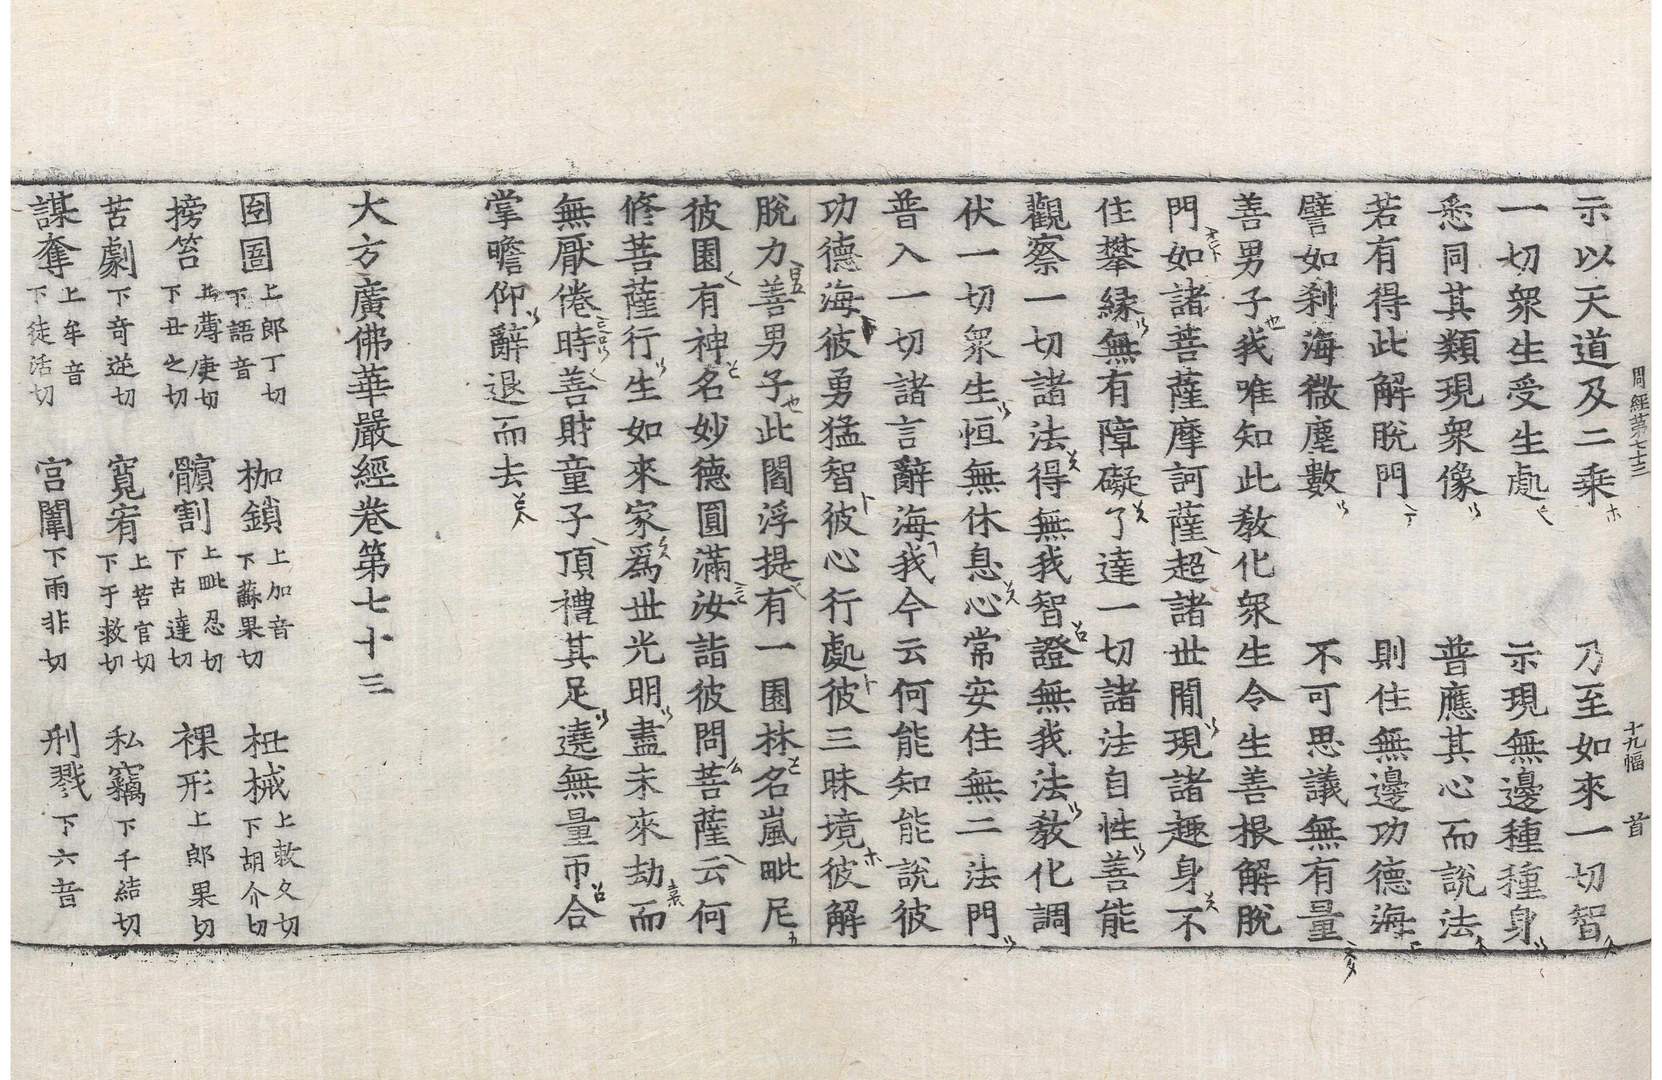 周經第七十三 十九幅 首
示以天道及二乘 乃至如來一切智
一切衆生受生處 示現無邊種種身
悉同其類現衆像 普應其心而說法
若有得此解脫門 則住無邊功德海
譬如刹海微塵數 不可思議無有量
善男子我唯知此敎化衆生令生善根解脫
門如諸菩薩摩訶薩超諸世閒現諸趣身不
住攀緣無有障礙了達一切諸法自性善能
觀察一切諸法得無我智證無我法敎化調
伏一切衆生恒無休息心常安住無二法門
普入一切諸言辭海我今云何能知能說彼
功德海彼勇猛智彼心行處彼三昧境彼解
脫力善男子此閻浮提有一園林名嵐毗尼
彼園有神名妙德圓滿汝詣彼問菩薩云何
修菩薩行生如來家爲世光明盡未來劫而
無厭倦時善財童子頂禮其足遶無量帀合
掌瞻仰辭退而去
大方廣佛華嚴經卷第七十三
囹圄上郎丁切下語音 枷鎖上加音下蘇果切 杻械上敕久切下胡介切
搒笞上薄庚切下丑之切 髕割上毗忍切下古達切 裸形上郎果切
苦劇下奇逆切 寬宥上苦官切下于救切 私竊下千結切
謀奪上牟音下徒活切 宮闈下雨非切 刑戮下六音